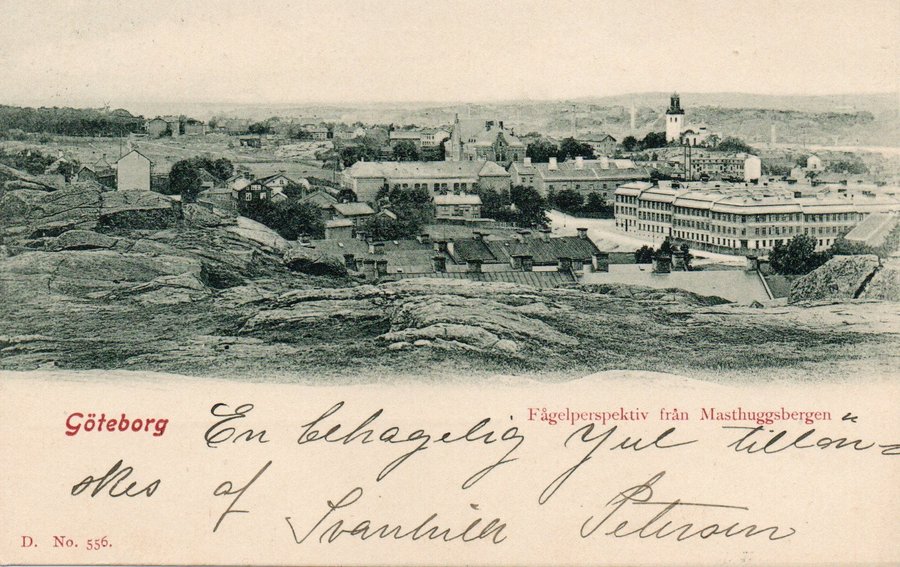 Göteborg
Fågelperspektiv från Masthuggsbergen
En behagelig Jul tillön-
skes af Svanhild Petersen
D. No. 556.